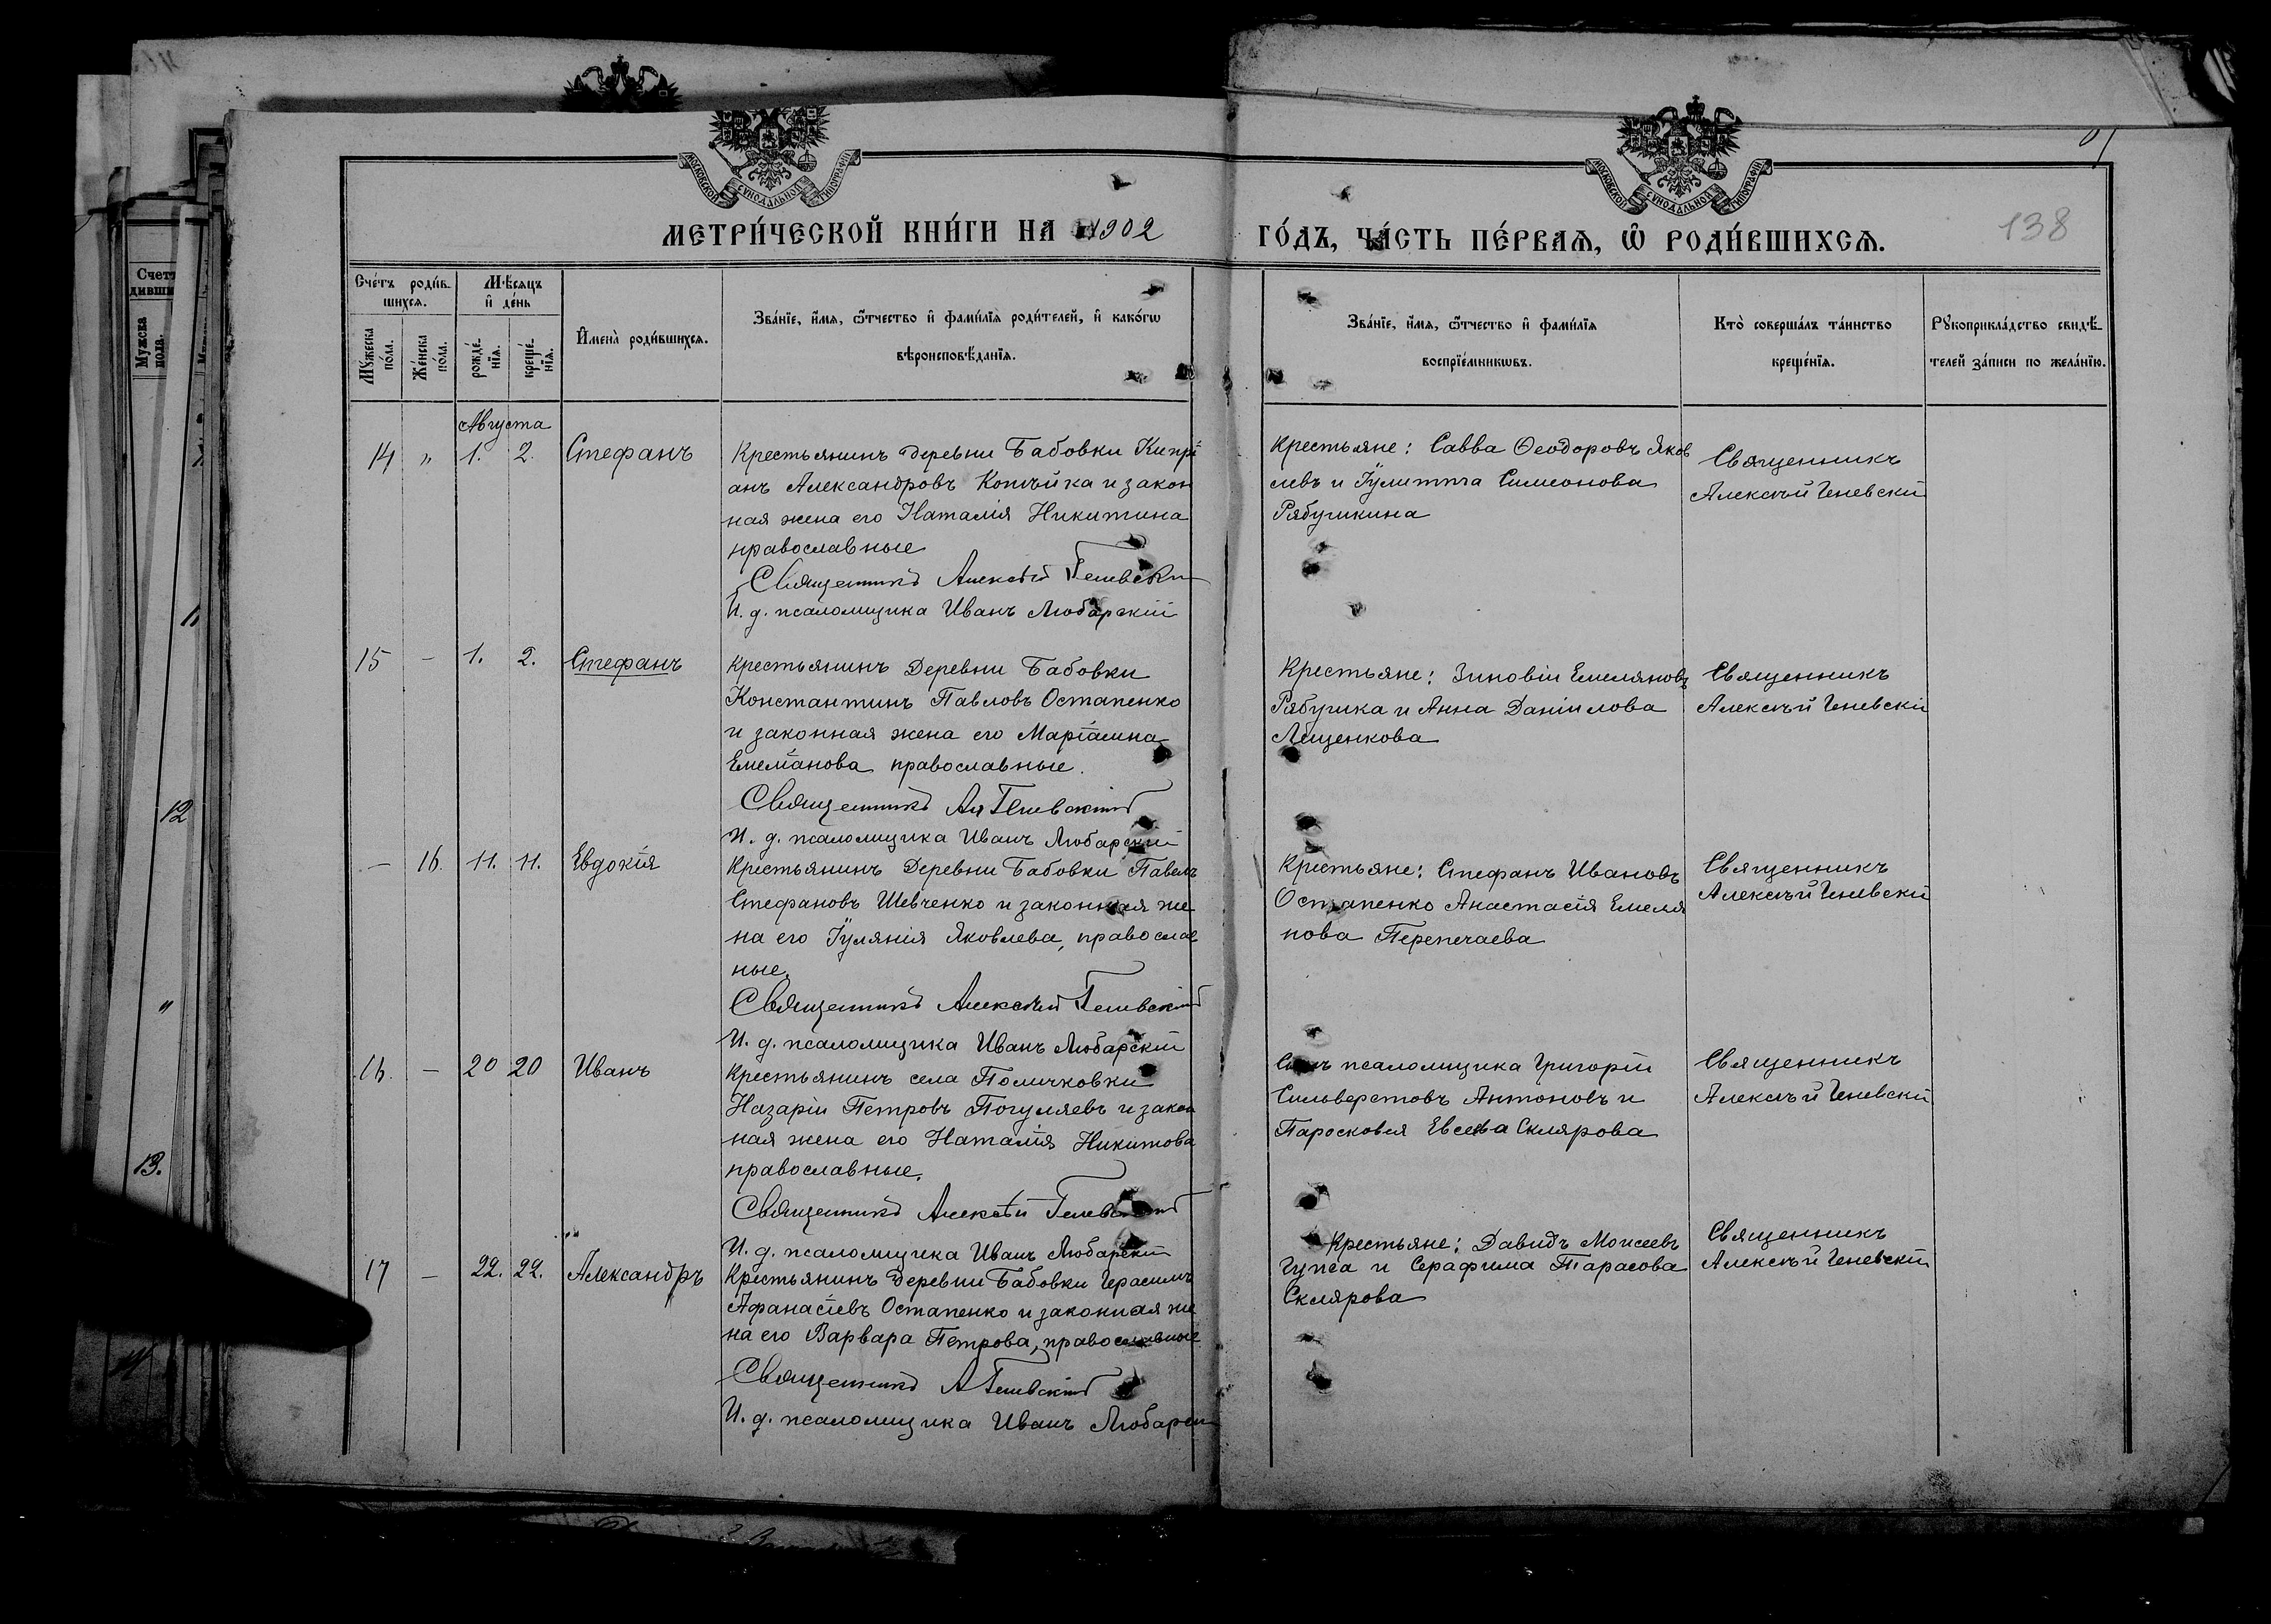 МЕТРИ́ЧЕСКОЙ КНИ́ГИ НА 1902 ГО́ДЪ, ЧА́СТЬ ПЕ́РВАѦ, Ѡ҆ РОДИ́ВШИХСѦ.
138
Сче́тъ роди́в-
шихсѧ.
Мѣ́сѧцъ
и҆ де́нь
И҆мена̀ роди́вшихсѧ.
Зва́нїе, и҆́мѧ, ѻ҆́тчество и҆ фами́лїѧ роди́телей, и҆ како́гѡ
вѣроисповѣ́данїѧ.
Зва́нїе, и҆́мѧ, ѻ҆́тчество и҆ фами́лїѧ
воспрїе́мникѡвъ.
Кто̀ соверша́лъ та́инство
креще́нїѧ.
Рꙋкоприкла́дство свидѣ́-
телей за́писи по жела́нїю.
Мꙋ́жеска
по́ла.
Же́нска
по́ла.
рожде́-
нїѧ.
креще́-
нїѧ.
Августа
14 " 1. 2. Стефанъ
Крестьянинъ деревни Бабовки Кипрі
анъ Александровъ Копѣйка и закон
ная жена его Наталія Никитина
православные
Священникъ Алексѣй Геневскій
И. д. псаломщика Иванъ Любарскій
Крестьяне: Савва Ѳеодоровъ Яков
левъ и Іулитта Симеонова
Рябушкина
Священникъ
Алексѣй Геневскій
15 - 1. 2. Стефанъ
Крестьянинъ Деревни Бабовки
Константинъ Павловъ Остапенко
и законная жена его Маріамна
Емеліанова православные.
Священникъ Ал Геневскій
И. д. псаломщика Иванъ Любарскій
Крестьяне: Зиновій Емеляновъ
Рябушка и Анна Даніилова
Лещенкова
Священникъ
Алексѣй Геневскій
- 16. 11. 11. Евдокія
Крестьянинъ Деревни Бабовки Павелъ
Стефановъ Шевченко и законная же
на его Іулянія Яковлева, православ
ные.
Священникъ Алексѣй Геневскій
И. д. псаломщика Иванъ Любарскій
Крестьяне: Стефанъ Ивановъ
Остапенко Анастасія Емеля
нова Перепечаева
Священникъ
Алексѣй Геневскій
16. - 20 20 Иванъ
Крестьянинъ села Поличковки
Назарій Петровъ Погуляевъ и закон
ная жена его Наталія Никитова
православные.
Священникъ Алексѣй Геневскій
И. д. псаломщика Иванъ Любарскій
Сынъ псаломщика Григорій
Сильверстовъ Антоновъ и
Паросковія Евсеева Склярова
Священникъ
Алексѣй Геневскій
17 - 22. 22. Александръ
Крестьянинъ деревни Бабовки Герасимъ
Афанасіевъ Остапенко и законная же
на его Варвара Петрова, православные
Священникъ А Геневскій
И. д. псаломщика Иванъ Любарскій
Крестьяне: Давидъ Моисеевъ
Гупса и Серафима Тарасова
Склярова
Священникъ
Алексѣй Геневскій
Мужска
пола.
12
13.